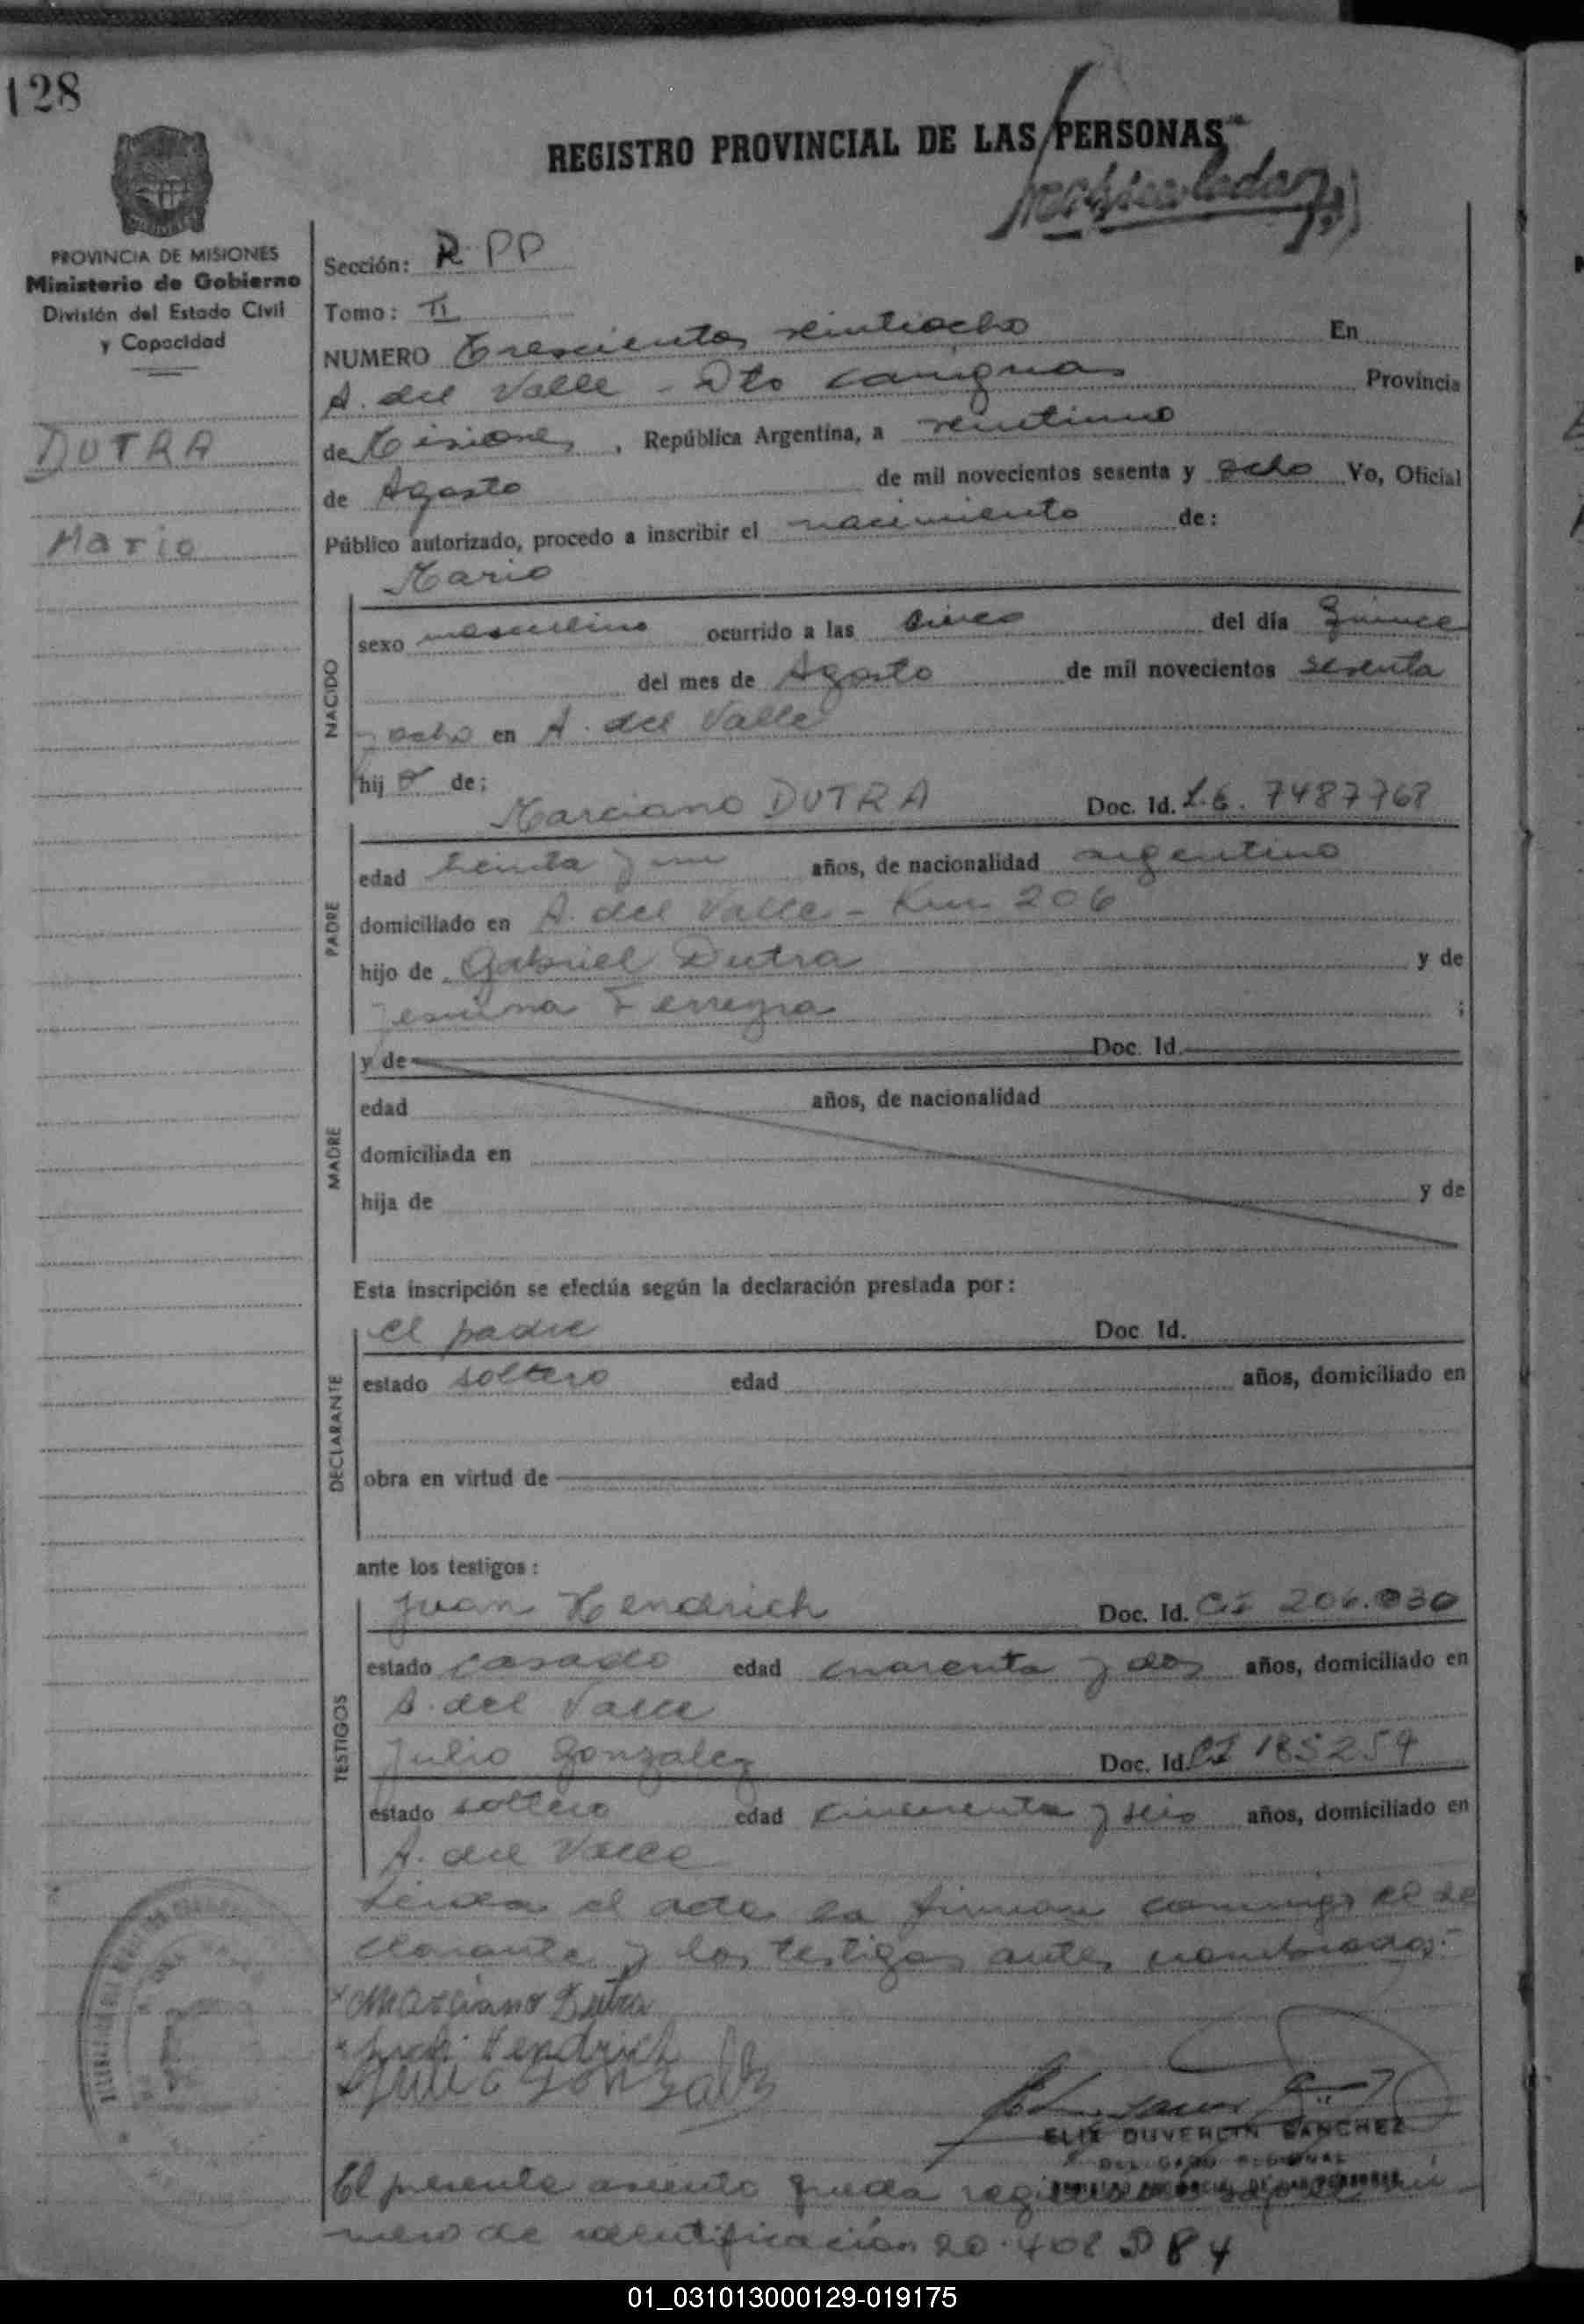 128
REGISTRO PROVINCIAL DE LAS PERSONAS
PROVINCIA DE MISIONES
Ministerio de Gobierno
División del Estado Civil
y Capacidad
DUTRA
Mario
Sección: R PP
Tomo: II
NUMERO Trescientos veintiocho En
A. del Valle - Dto Cainguas Provincia
de Misiones, República Argentina, a veintiuno
de Agosto de mil novecientos sesenta y ocho Yo, Oficial
Público autorizado, procedo a inscribir el nacimiento de:
Mario
NACIDO
sexo masculino ocurrido a las cinco del día quince
del mes de Agosto de mil novecientos sesenta
y ocho en A. del Valle
hijo de:
Marciano DUTRA Doc. Id. L.E. 7487768
PADRE
edad treinta y un años, de nacionalidad argentino
domiciliado en A. del Valle - Km 206
hijo de Gabriel Dutra y de
Ferreyra ;
MADRE
y de Doc. Id.
edad años, de nacionalidad
domiciliada en
hija de y de
Esta inscripción se efectúa según la declaración prestada por:
DECLARANTE
el padre Doc. Id.
estado soltero edad años, domiciliado en
obra en virtud de
ante los testigos:
TESTIGOS
Juan Hendrich Doc. Id. CI 206.030
estado casado edad cuarenta y dos años, domiciliado en
A. del Valle
Julio Gonzalez Doc. Id. CI 185254
estado soltero edad cincuenta y seis años, domiciliado en
A. del Valle
Leida el acta la firman conmigo el de
clarante y los testigos antes nombrados.-
x Marciano Dutra
x Hendrich
x Julio Gonzalez
ELIE DUVERLIN SANCHEZ
DELEGADO REGIONAL
El presente asiento queda registrado nú
mero de identificación 20.408 D 84
01_031013000129-019175